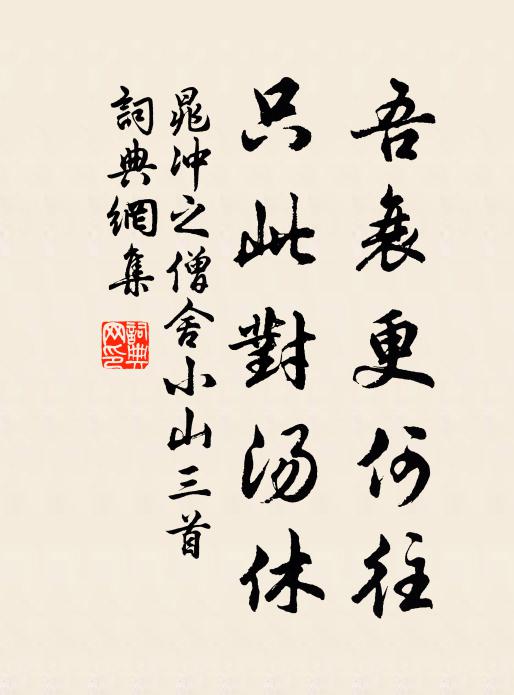 吾衰更何往
只此對汤休
晁冲之僧舍小山三首
詞典網集
詞典网印